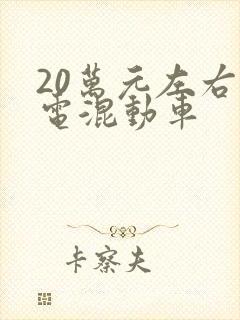 20萬元左右
電混動車
卡察夫